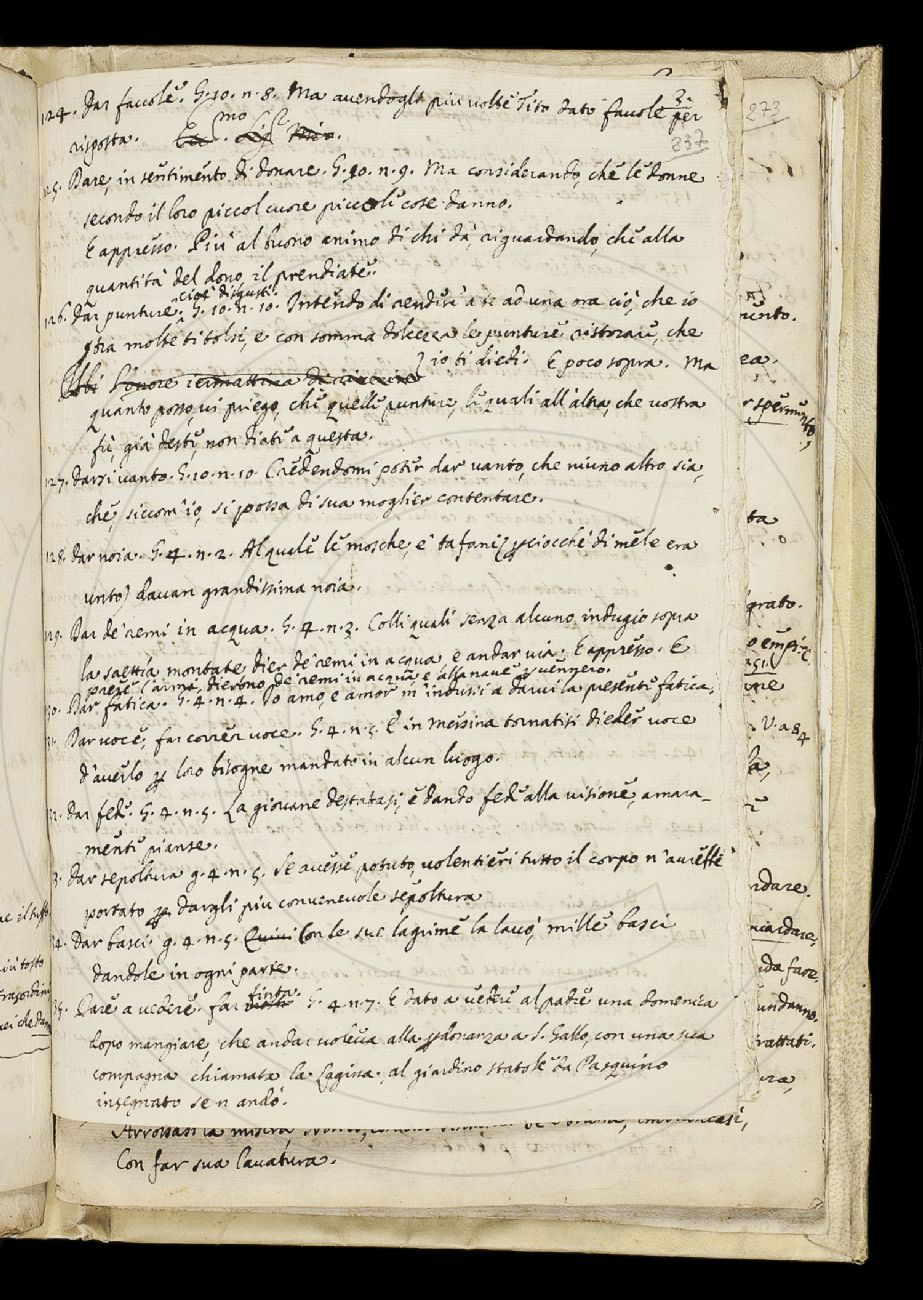 3.
273
237
124. Dar favole. G. 10. n. 8. Ma avendogli piu volte Tito dato favole per
risposta.
125. Dare, in sentimento di donare. G. 10. n. 9. Ma considerando, che le donne
secondo il loro piccol cuore piccole cose danno.
E appresso. Più al buono animo di chi dà, riguardando, che alla
quantità del dono, il prendiate.
126. Dar punture, cioè disgusti. G. 10. n. 10. Intendo di rendere a te ad una ora ciò, che io
tra molte ti tolsi, e con somma dolcezza le punture ristorare, che
io ti diedi. E poco sopra. Ma
quanto posso, vi priego, che quelle punture, le quali all'altra, che vostra
fù, già deste, non diate a questa.
127. Darsi vanto. G. 10. n. 10. Credendomi poter dar vanto, che niuno altro sia,
che, siccom'io, si possa di sua moglier contentare.
128. Dar noia. G. 4. n. 2. Al quale le mosche, e' tafani (perciocché di mele era
unto) davan grandissima noia.
129. Dar de' remi in acqua. G. 4. n. 3. Colli quali senza alcuno indugio sopra
la saettia montate, dier de' remi in acqua, e andar via. E appresso. E
prese l'arme, dierono de' remi in acqua, e alla nave pervennero.
130. Dar fatica. G. 4. n. 4. Io amo, e amor m'indusse a darvi la presente fatica.
131. Dar voce, far correr voce. G. 4. n. 5. E in Messina tornatisi dieder voce
d'averlo per loro bisogne mandato in alcun luogo.
132. Dar fede. G. 4. n. 5. La giovane destatasi, e dando fede alla visione, amara-
mente pianse.
133. Dar sepoltura g. 4. n. 5. Se avesse potuto, volentieri tutto il corpo n'avesse
portato per dargli piu convenevole sepoltura
134. Dar basci. g. 4. n. 5. Quivi Con le sue lagrime la lavò, mille basci
dandole in ogni parte.
135. Dare a vedere. far finta. G. 4. n. 7. E dato a vedere al padre una domenica
dopo mangiare, che andar voleva alla perdonanza a S. Gallo, con una sua
compagna chiamata la Lagina, al giardino statole da Pasquino
insegnato se n'andò.
Con far sua lavatura.